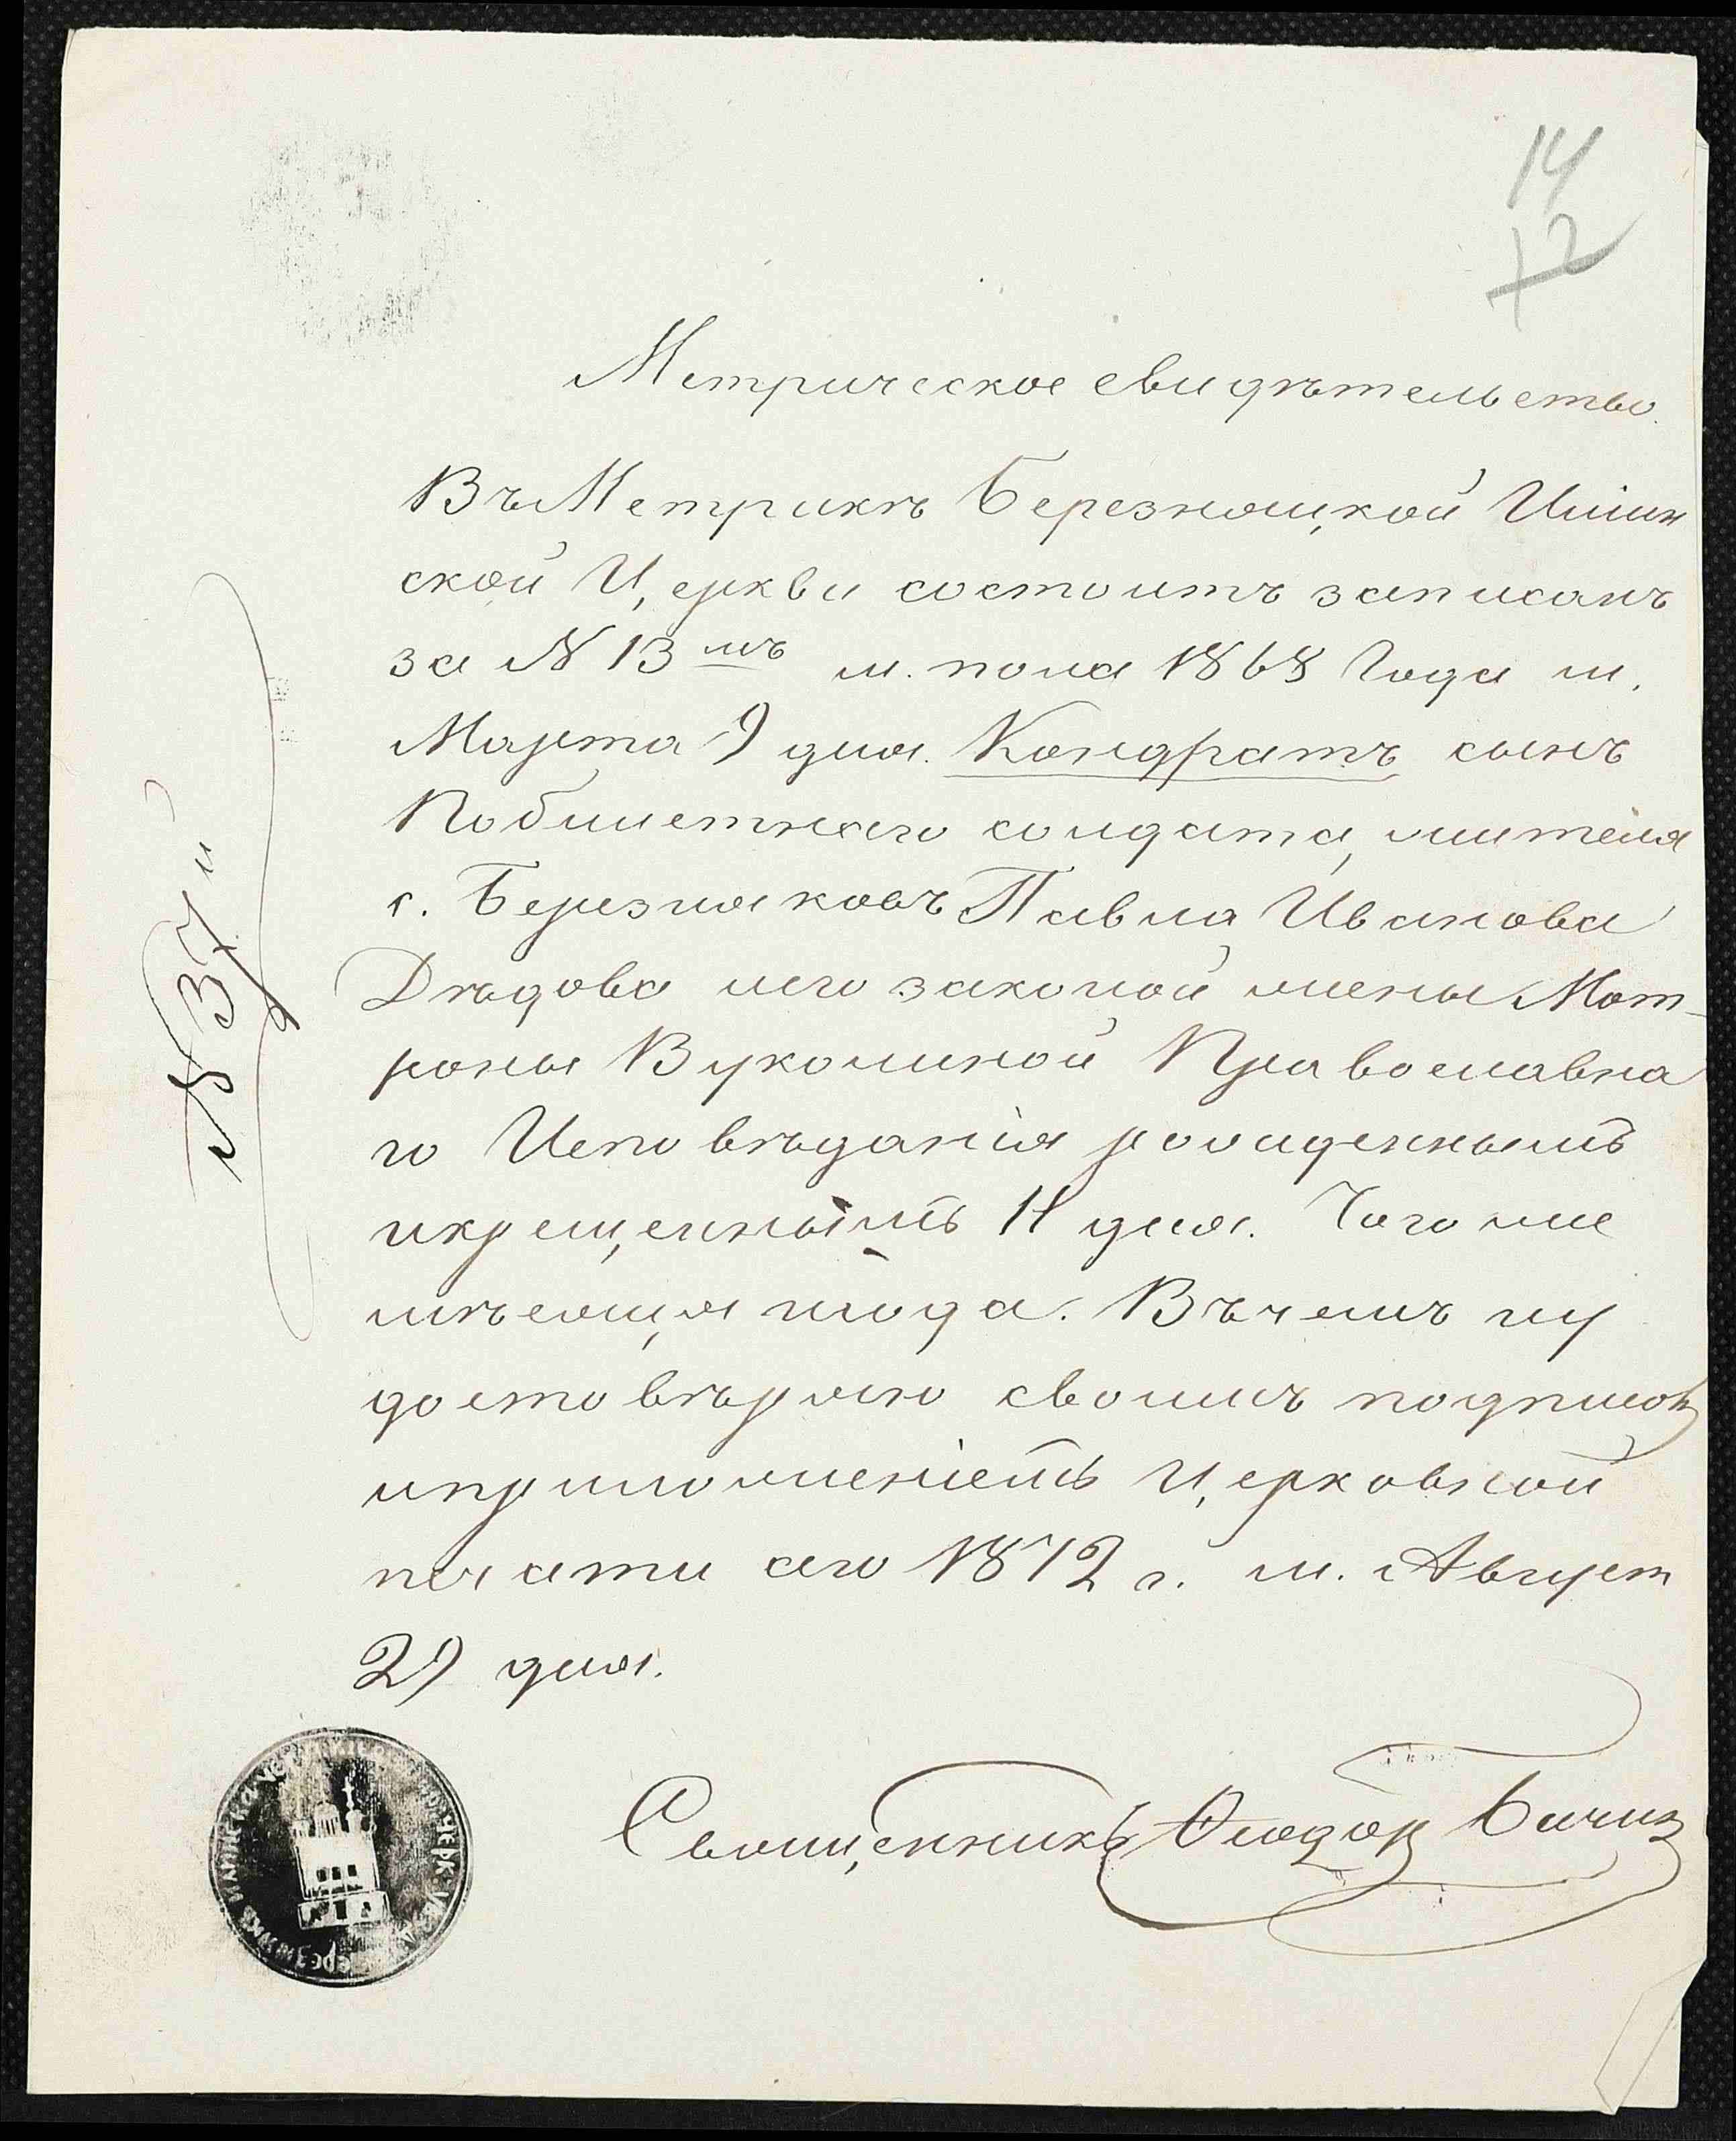 14
12
Метрическое свидѣтельство.
Въ Метрикѣ Березняцкой Илiин
ской Церкви состоитъ записанъ
за № 13 мъ м. пола 1868 Года м.
Марта 9 дня. Кондратъ сынъ
Побилетнаго солдата, жителя
с. Березняковъ Павла Иванова
Дѣдова иего законой жены Мат-
роны Вуколиной Православна
го Исповѣданія рожденнымъ
икрещеннымъ 11 дня. Того же
мѣсяца игода. Въчемъ иу
достовѣряю своимъ подписом
иприложеніемъ Церковной
печати сего 1872 г. м. Август
29 дня.
Священникъ Ѳеодор
№ 37й